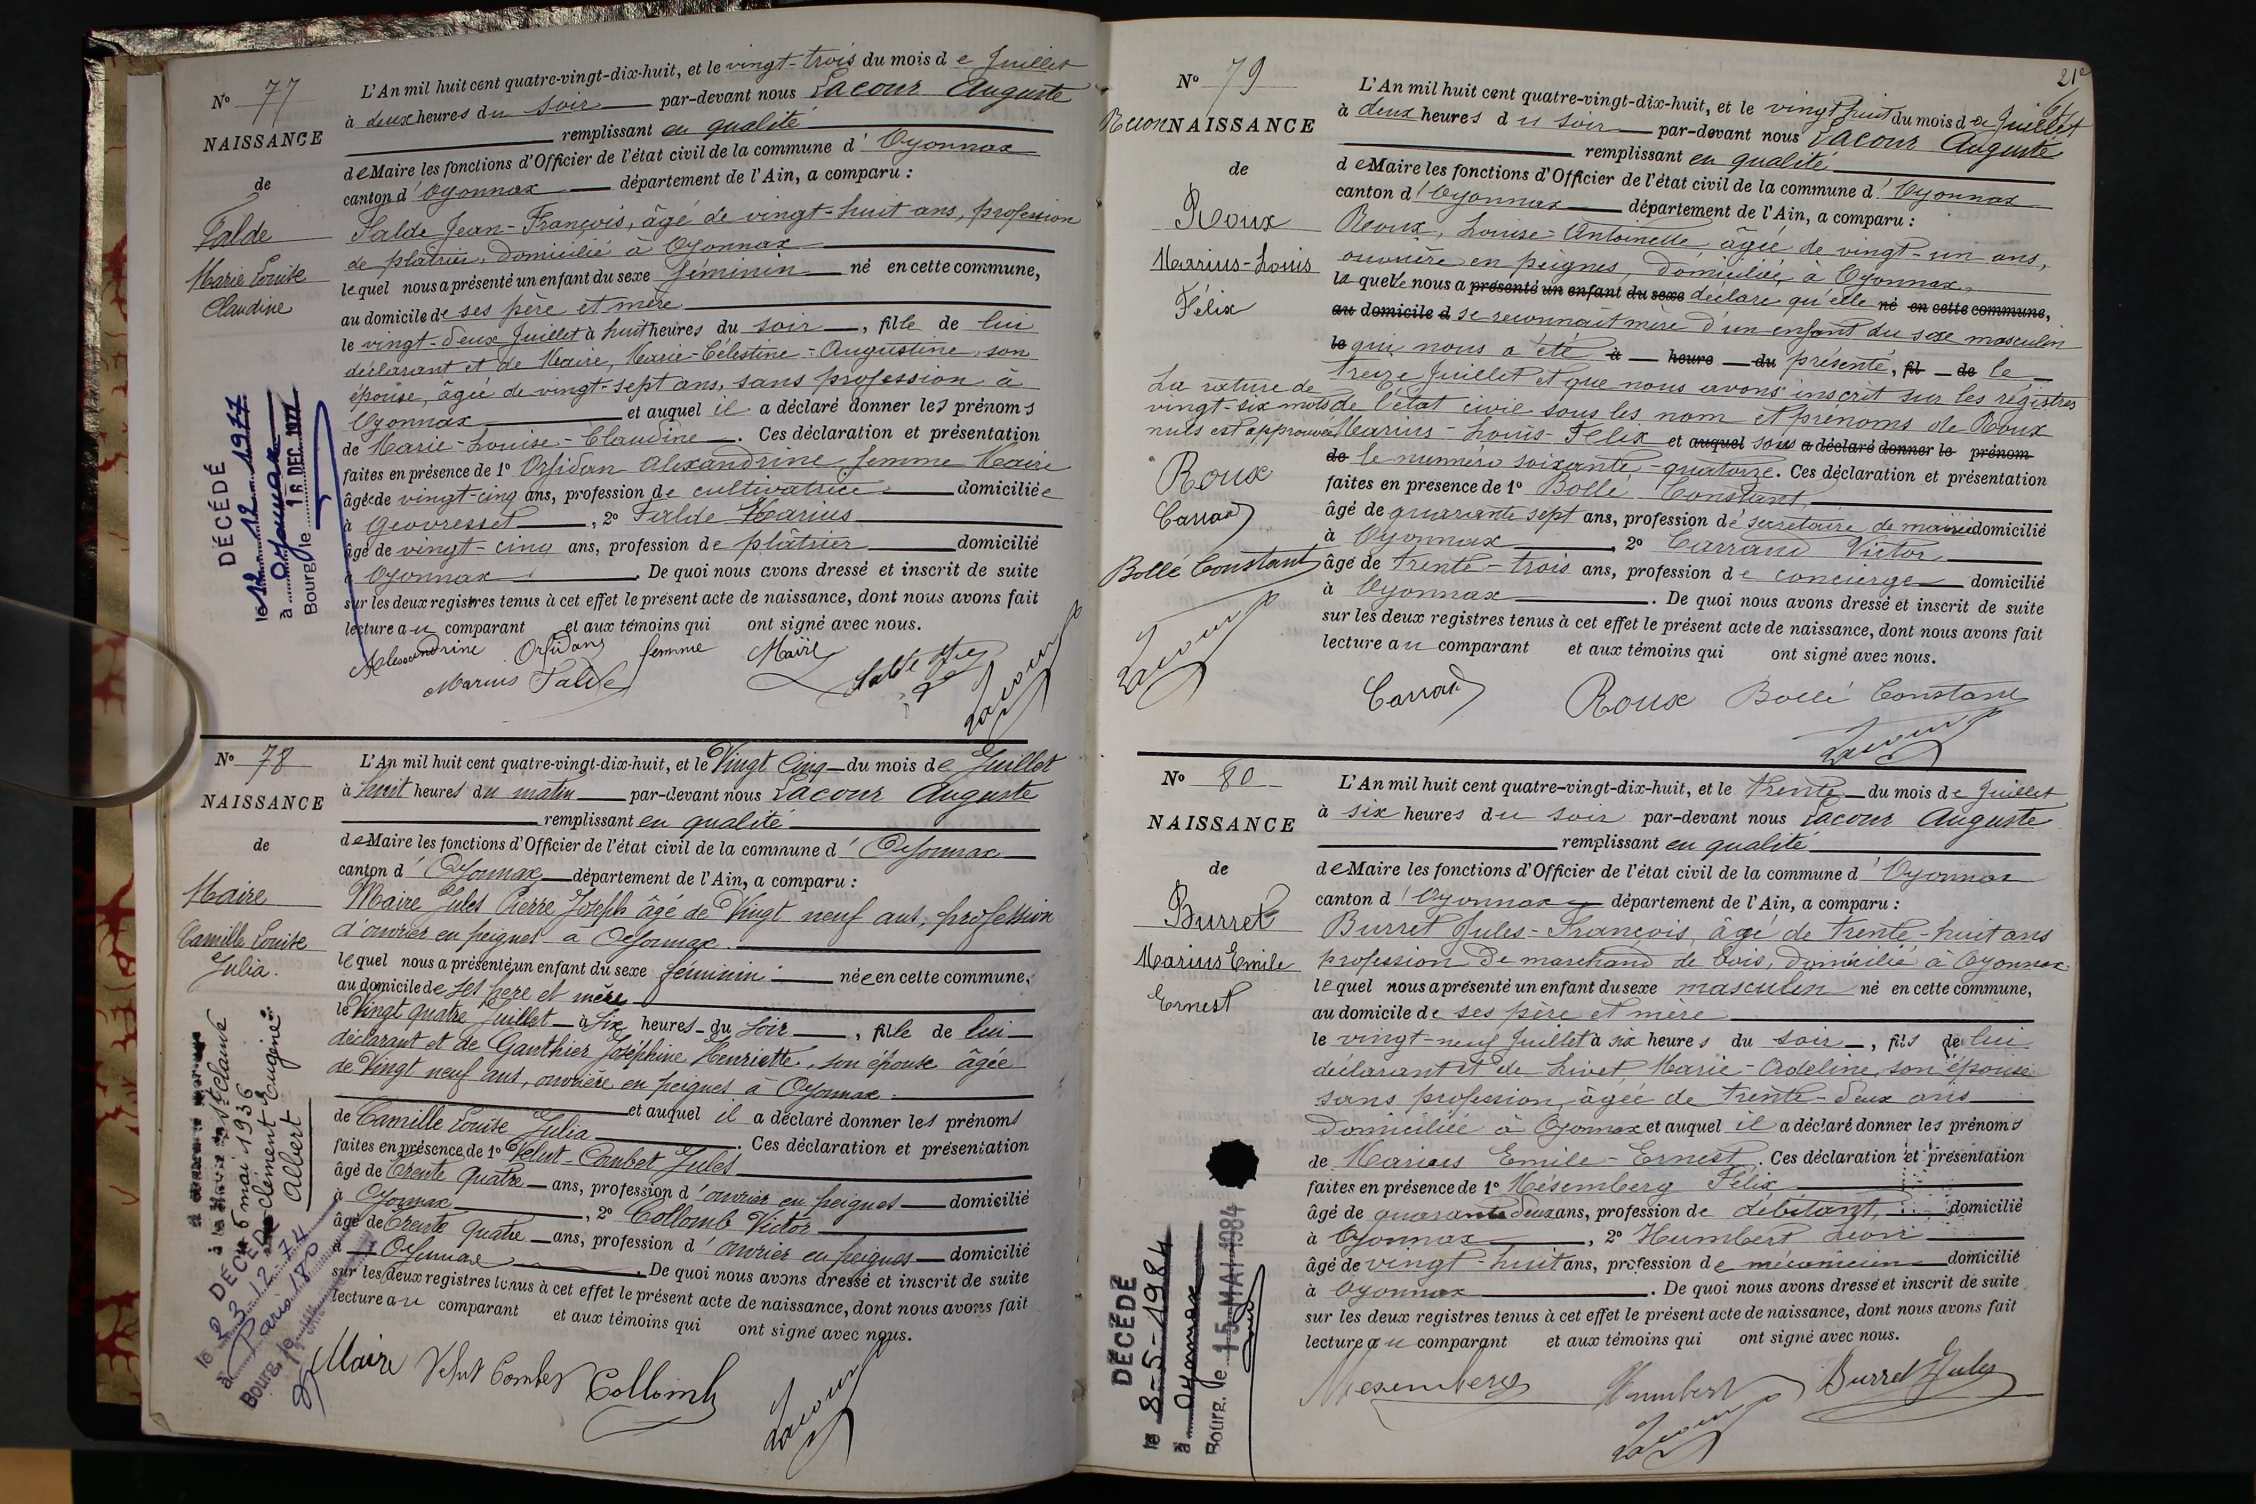 N° 77
NAISSANCE
de
Falde
Marie Louise
Claudine
DÉCÉDÉ
le 12.12.1977
à Oyonnax
Bourg, le 16 DEC. 1977
L'An mil huit cent quatre-vingt-dix-huit, et le vingt-trois du mois de Juillet
à deux heures du soir par-devant nous Lacour Auguste
remplissant en qualité
de Maire les fonctions d'Officier de l'état civil de la commune d'Oyonnax
canton d'Oyonnax département de l'Ain, a comparu :
Falde Jean-François, âgé de vingt-huit ans, profession
de plâtrier, domicilié à Oyonnax
lequel nous a présenté un enfant du sexe féminin né en cette commune,
au domicile de ses père et mère
le vingt-deux Juillet à huit heures du soir, fille de lui
déclarant et de Maire, Marie-Célestine-Augustine, son
épouse, âgée de vingt-sept ans, sans profession à
Oyonnax et auquel il a déclaré donner les prénoms
de Marie-Louise-Claudine. Ces déclaration et présentation
faites en présence de 1° Orsidan Alexandrine femme Maire
âgée de vingt-cinq ans, profession de cultivatrice domiciliée
à Geovresset, 2° Falde Marius
âgé de vingt-cinq ans, profession de plâtrier domicilié
à Oyonnax. De quoi nous avons dressé et inscrit de suite
sur les deux registres tenus à cet effet le présent acte de naissance, dont nous avons fait
lecture au comparant et aux témoins qui ont signé avec nous.
Alexandrine Orsidan femme Maire
Marius Falde
Lacour
N° 78
NAISSANCE
de
Maire
Camille Louise
Julia.
à la Mairie de St Claude
6 mai 1936
Clément Eugène
Albert
DÉCÉDÉ
le 23.12.74
à Paris 18°
Bourg, le
L'An mil huit cent quatre-vingt-dix-huit, et le Vingt Cinq du mois de Juillet
à huit heures du matin par-devant nous Lacour Auguste
remplissant en qualité
de Maire les fonctions d'Officier de l'état civil de la commune d'Oyonnax
canton d'Oyonnax département de l'Ain, a comparu :
Maire Jules Pierre Joseph âgé de Vingt neuf ans, profession
d'ouvrier en peignes à Oyonnax
lequel nous a présenté un enfant du sexe féminin née en cette commune,
au domicile de ses père et mère
le Vingt quatre Juillet à Six heures du soir, fille de lui
déclarant et de Gauthier Joséphine Henriette, son épouse âgée
de Vingt neuf ans, ouvrière en peignes à Oyonnax
et auquel il a déclaré donner les prénoms
de Camille Louise Julia. Ces déclaration et présentation
faites en présence de 1° Velut-Combet Jules
âgé de Trente quatre ans, profession d'ouvrier en peignes domicilié
à Oyonnax, 2° Collomb Victor
âgé de Trente quatre ans, profession d'ouvrier en peignes domicilié
à Oyonnax. De quoi nous avons dressé et inscrit de suite
sur les deux registres tenus à cet effet le présent acte de naissance, dont nous avons fait
lecture au comparant et aux témoins qui ont signé avec nous.
Maire Velut Combet Collomb
Lacour
21e
N° 79
Recon NAISSANCE
de
Roux
Marius-Louis
Félix
La rature de
vingt-six mots
nuls est approuvée
Roux
Carrand
Bollé Constant
Lacour
L'An mil huit cent quatre-vingt-dix-huit, et le vingt huit du mois de Juillet
à deux heures du soir par-devant nous Lacour Auguste
remplissant en qualité
de Maire les fonctions d'Officier de l'état civil de la commune d'Oyonnax
canton d'Oyonnax département de l'Ain, a comparu :
Roux, Louise-Antoinette âgée de vingt-un ans,
ouvrière en peignes, domiciliée à Oyonnax,
la quelle nous a présenté un enfant du sexe déclaré qu'elle né en cette commune,
au domicile d se reconnait mère d'un enfant du sexe masculin
le qui nous a été à heure du présenté, fil de le
treize Juillet et que nous avons inscrit sur les régistres
de l'état civil sous les nom et prénoms de Roux
Marius-Louis-Félix et auquel sous a déclaré donner le prénom
de le numéro soixante-quatorze. Ces déclaration et présentation
faites en présence de 1° Bollé Constant,
âgé de quarante sept ans, profession de secrétaire de mairie domicilié
à Oyonnax, 2° Carrand Victor
âgé de trente-trois ans, profession de concierge domicilié
à Oyonnax. De quoi nous avons dressé et inscrit de suite
sur les deux registres tenus à cet effet le présent acte de naissance, dont nous avons fait
lecture au comparant et aux témoins qui ont signé avec nous.
Carrand Roux Bollé Constant
Lacour
N° 80
NAISSANCE
de
Burret
Marius Emile
Ernest
DÉCÉDÉ
le 8-5-1984
à Oyonnax
Bourg, le 15 MAI 1984
L'An mil huit cent quatre-vingt-dix-huit, et le trente du mois de Juillet
à six heures du soir par-devant nous Lacour Auguste
remplissant en qualité
de Maire les fonctions d'Officier de l'état civil de la commune d'Oyonnax
canton d'Oyonnax département de l'Ain, a comparu :
Burret Jules-François, âgé de trente-huit ans
profession de marchand de bois, domicilié à Oyonnax
lequel nous a présenté un enfant du sexe masculin né en cette commune,
au domicile de ses père et mère
le vingt-neuf Juillet à six heures du soir, fils de lui
déclarant et de Livet, Marie-Adeline, son épouse
sans profession, âgée de trente-deux ans
domiciliée à Oyonnax et auquel il a déclaré donner les prénoms
de Marius Emile-Ernest. Ces déclaration et présentation
faites en présence de 1° Mesemberg Félix
âgé de quarante deux ans, profession de débitant, domicilié
à Oyonnax, 2° Humbert Léon
âgé de vingt-huit ans, profession de mécanicien domicilié
à Oyonnax. De quoi nous avons dressé et inscrit de suite
sur les deux registres tenus à cet effet le présent acte de naissance, dont nous avons fait
lecture au comparant et aux témoins qui ont signé avec nous.
Mesemberg Humbert Burret Jules
Lacour